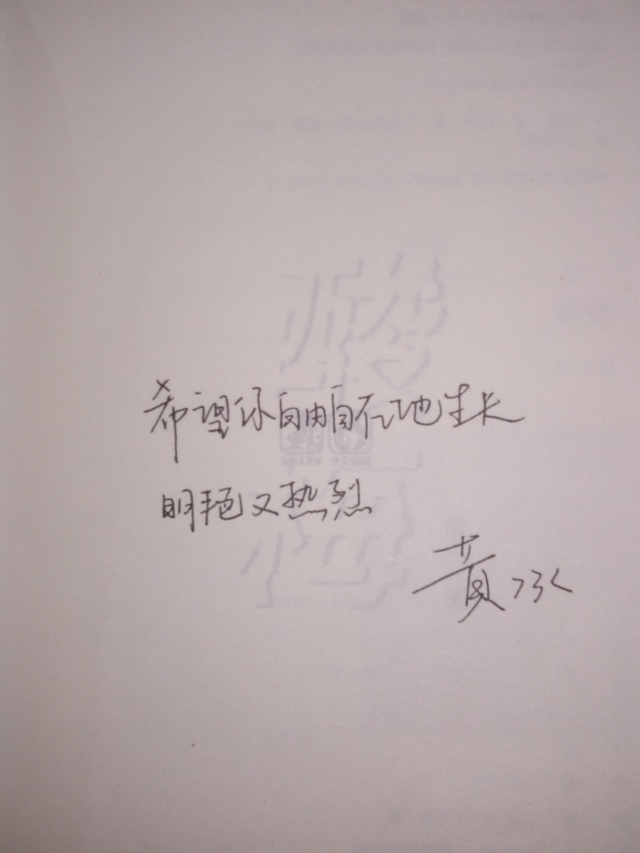 希望你自由自在地生长
明艳又热烈
黄